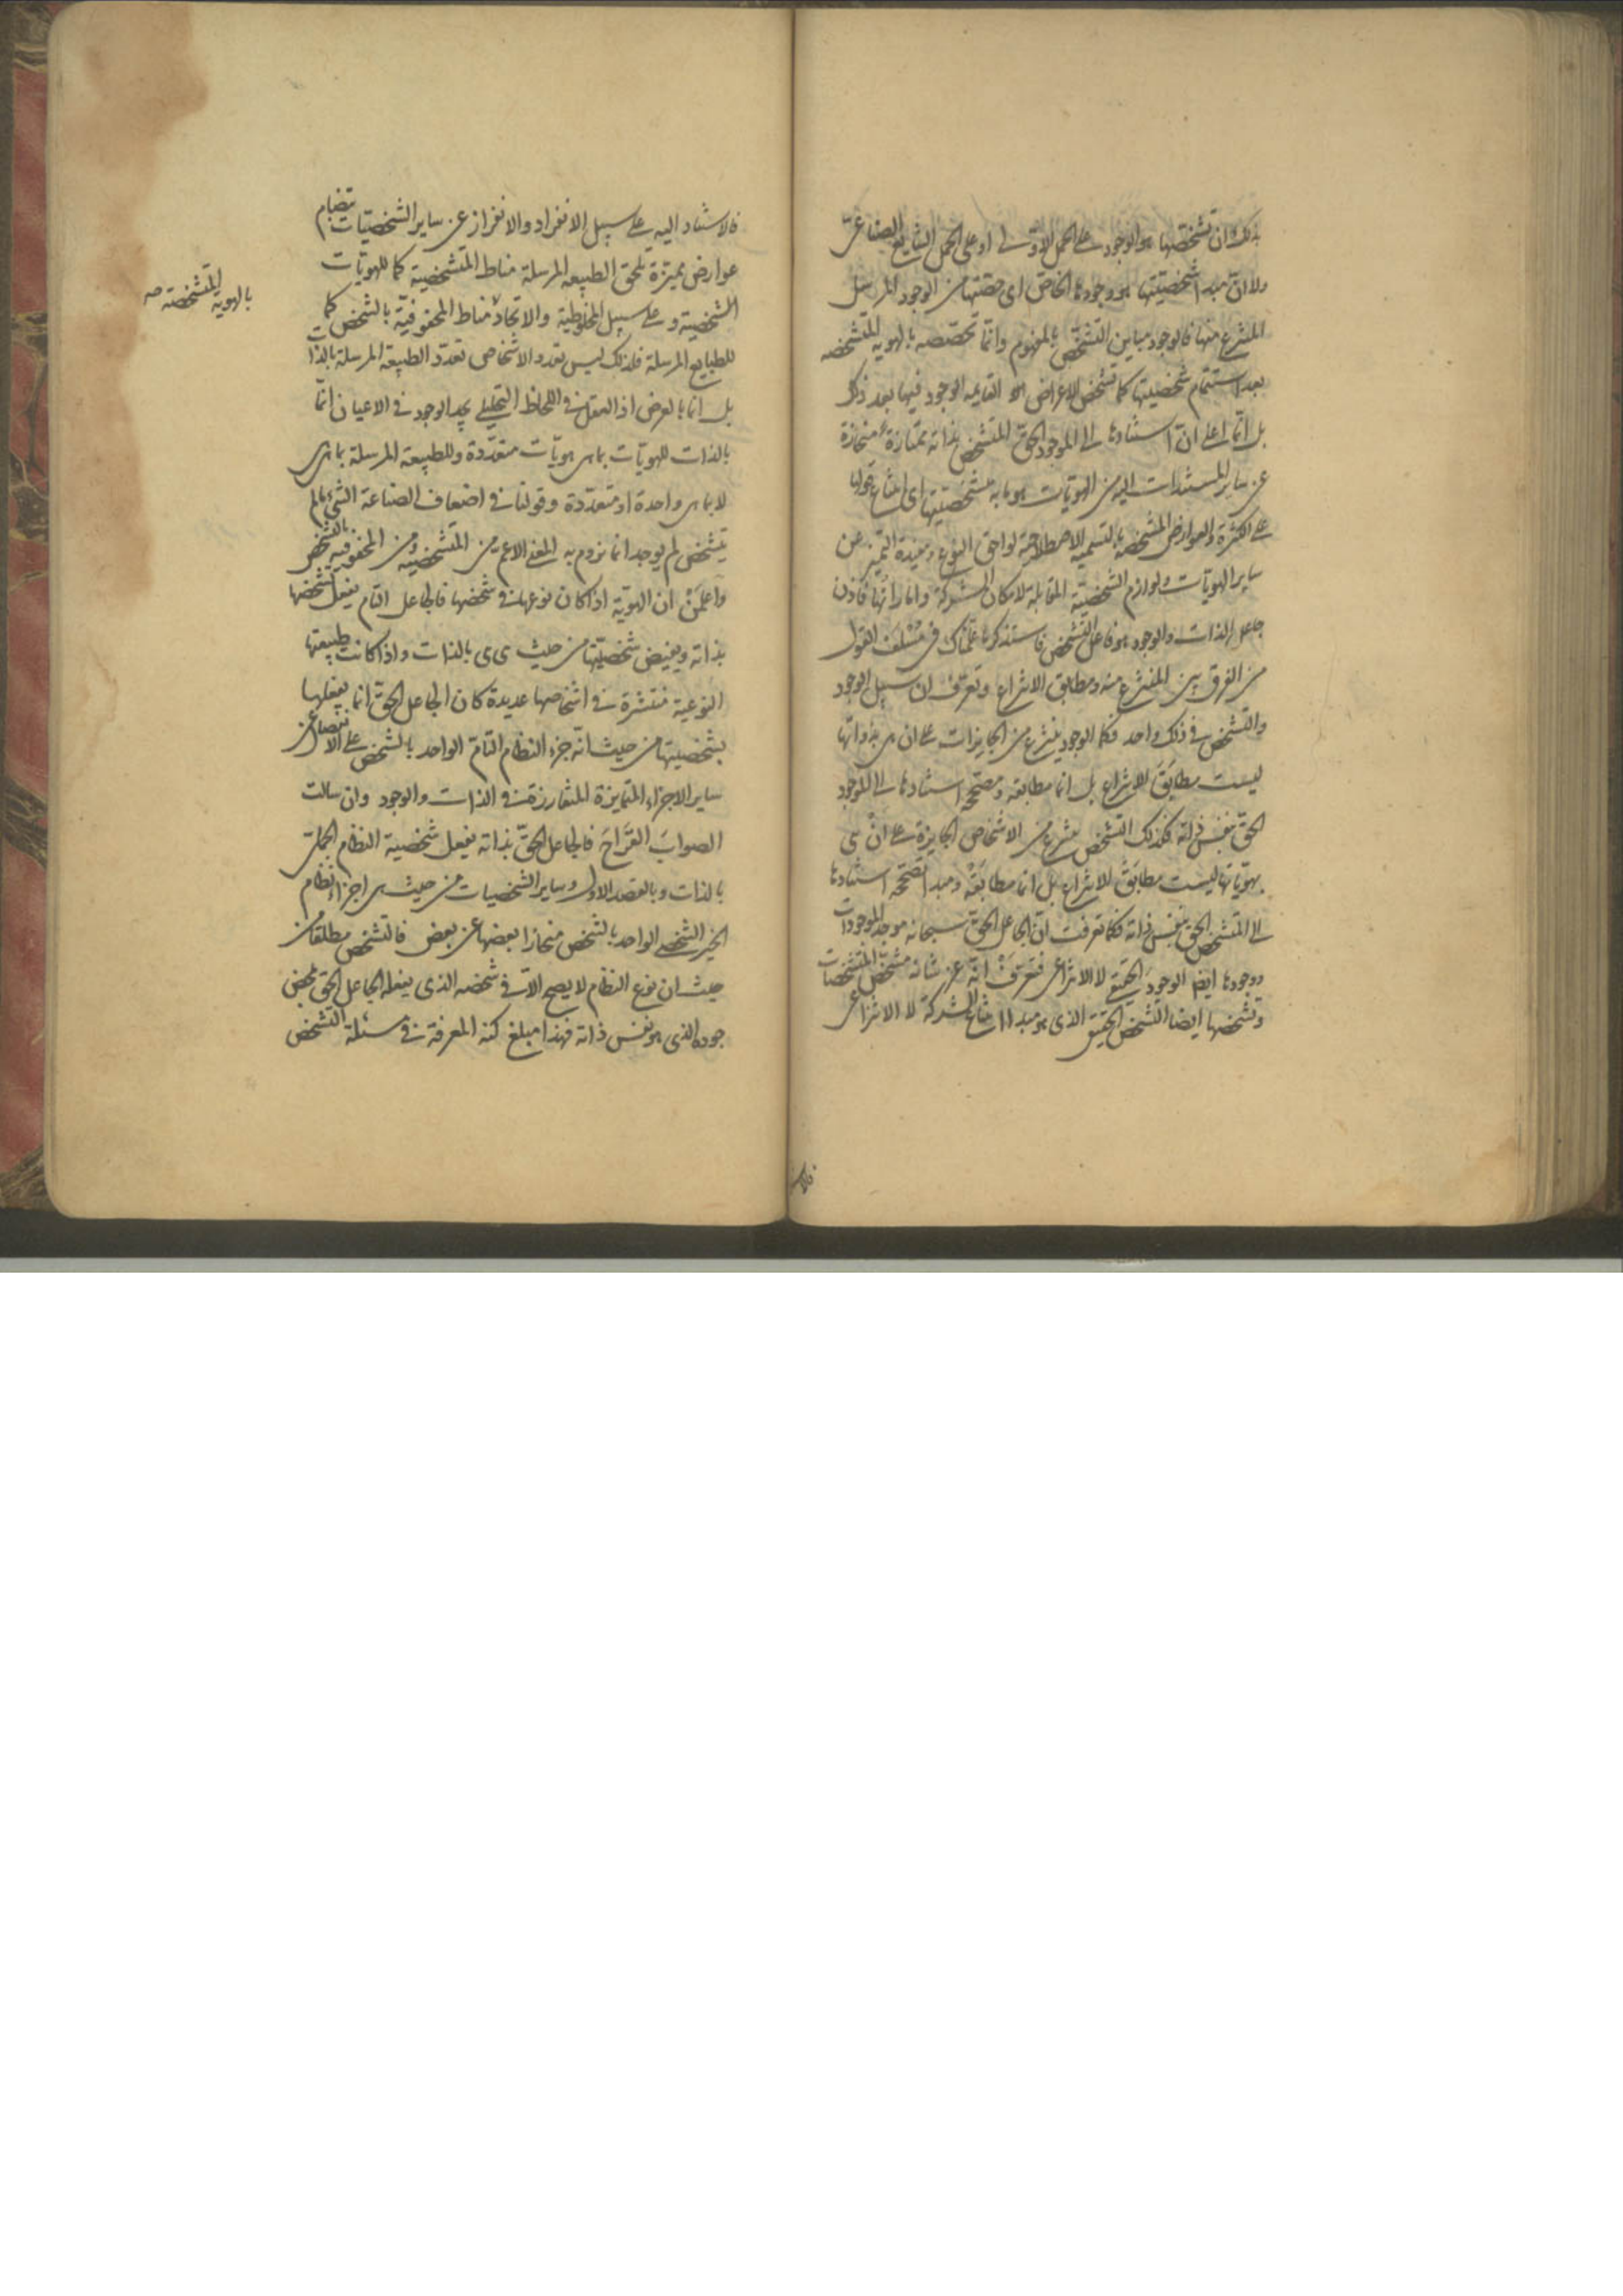 بذلك وان تشخصها هو الوجود على الحمل الاولى او على الحمل الشايع الصناعى
ولا ان مبدا شخصيتها هو وجودها الخاص اى حصتها من الوجود المرسل
المنتزع منها فالوجود مباين التشخص بالمفهوم وانما تخصصه بالهوية المتشخصه
بعد استتمام شخصيتها كما تشخص الاعراض القايمه الوجود فيها بعد ذلك
بل انما على ان استنادها الى الموجود الحق المتشخص بذاته ممتازة منحازة
عن ساير المستندات اليه من الهويات هو ما به متشخصيتها اى امتناع حملها
على الكثرة والعوارض المشخصة بالتسمية الاصطلاحية لواحق النوع ومفيدة التميز عن
ساير الهويات ولوازم الشخصية المقابلة لامكان الشركة واماراتها فاذن
جاعل الذات والوجود هو فاعل التشخص فاستذكر ما علمناك فى مسلف القول
من الفرق بين المنتزع منه ومطابق الانتزاع وتعرف ان سبيل الوجود
والتشخص فى ذلك واحد فكما الوجود ينتزع من الجايزات على ان هى بذواتها
ليست مطابق الانتزاع بل انما مطابقه ومصححه استنادها الى الموجود
الحق بنفس ذاته فكذلك التشخص ينتزع من الاشخاص الجايزة على ان هى
بهوياتها ليست مطابق الانتزاع بل انما مطابقه ومبدا تصححه استنادها
الى المتشخص الحق بنفس ذاته فكما تعرفت ان الجاعل الحق سبحانه موجد الموجودات
ووجودها ايضا الوجود الحقيقى لا الانتزاعى فتعرف انه عز شانه مشخص المتشخصات
وتشخصها ايضا التشخص الحقيقى الذى هو مبدا امتناع الشركة لا الانتزاعى
فالاستناد
فالاستناد اليه على سبيل الانفراد والانفراز عن ساير الشخصيات بتضام
عوارض مميزة تلحق الطبيعه المرسلة مناط المتشخصية كما للهويات
الشخصية وعلى سبيل المخلوطية والاتحاد مناط المحفوفية بالتشخص كما
للطبايع المرسلة فلذلك ليس تعدد الاشخاص تعدد الطبيعة المرسلة بالذات
بل انما بالعرض اذ العقل فى اللحاظ التحليلى يجد الوجود فى الاعيان انما
بالذات للهويات بما هى هويات متعددة وللطبيعة المرسلة بما هى هى
لا بما هى واحدة او متعددة وقولنا فى اضعاف الصناعة الشىء ما لم
يتشخص لم يوجد انما نروم به المعنى الاعم من المتشخصيه ومن المحفوفية بالتشخص
واعلمن ان الهوية اذا كان نوعها فى شخصها فالجاعل التام يفعل شخصها
بذاته ويفيض شخصيتها من حيث هى هى بالذات واذا كانت طبيعتها
النوعية منتشرة فى اشخاصها عديدة كان الجاعل الحق انما يفعلها
بشخصيتها من حيث انه جزء النظام التام الواحد بالشخص على الانفصال عن
ساير الاجزاء المتمايزة المتفارزة فى الذات والوجود وان سالت
الصواب القراح فالجاعل الحق بذاته يفعل شخصية النظام الجملى
بالذات وبالقصد الاول وساير الشخصيات من حيث هى اجزاء نظام
الخير الشخصى الواحد بالشخص منحازا بعضها عن بعض فالتشخص مطلقا من
حيث ان نوع النظام لا يصح الا فى شخصه الذى يفعله الجاعل الحق بمحض
جوده الذى هو نفس ذاته فهذا مبلغ كنه المعرفة فى مسئلة التشخص
بالهويه المتشخصة صه